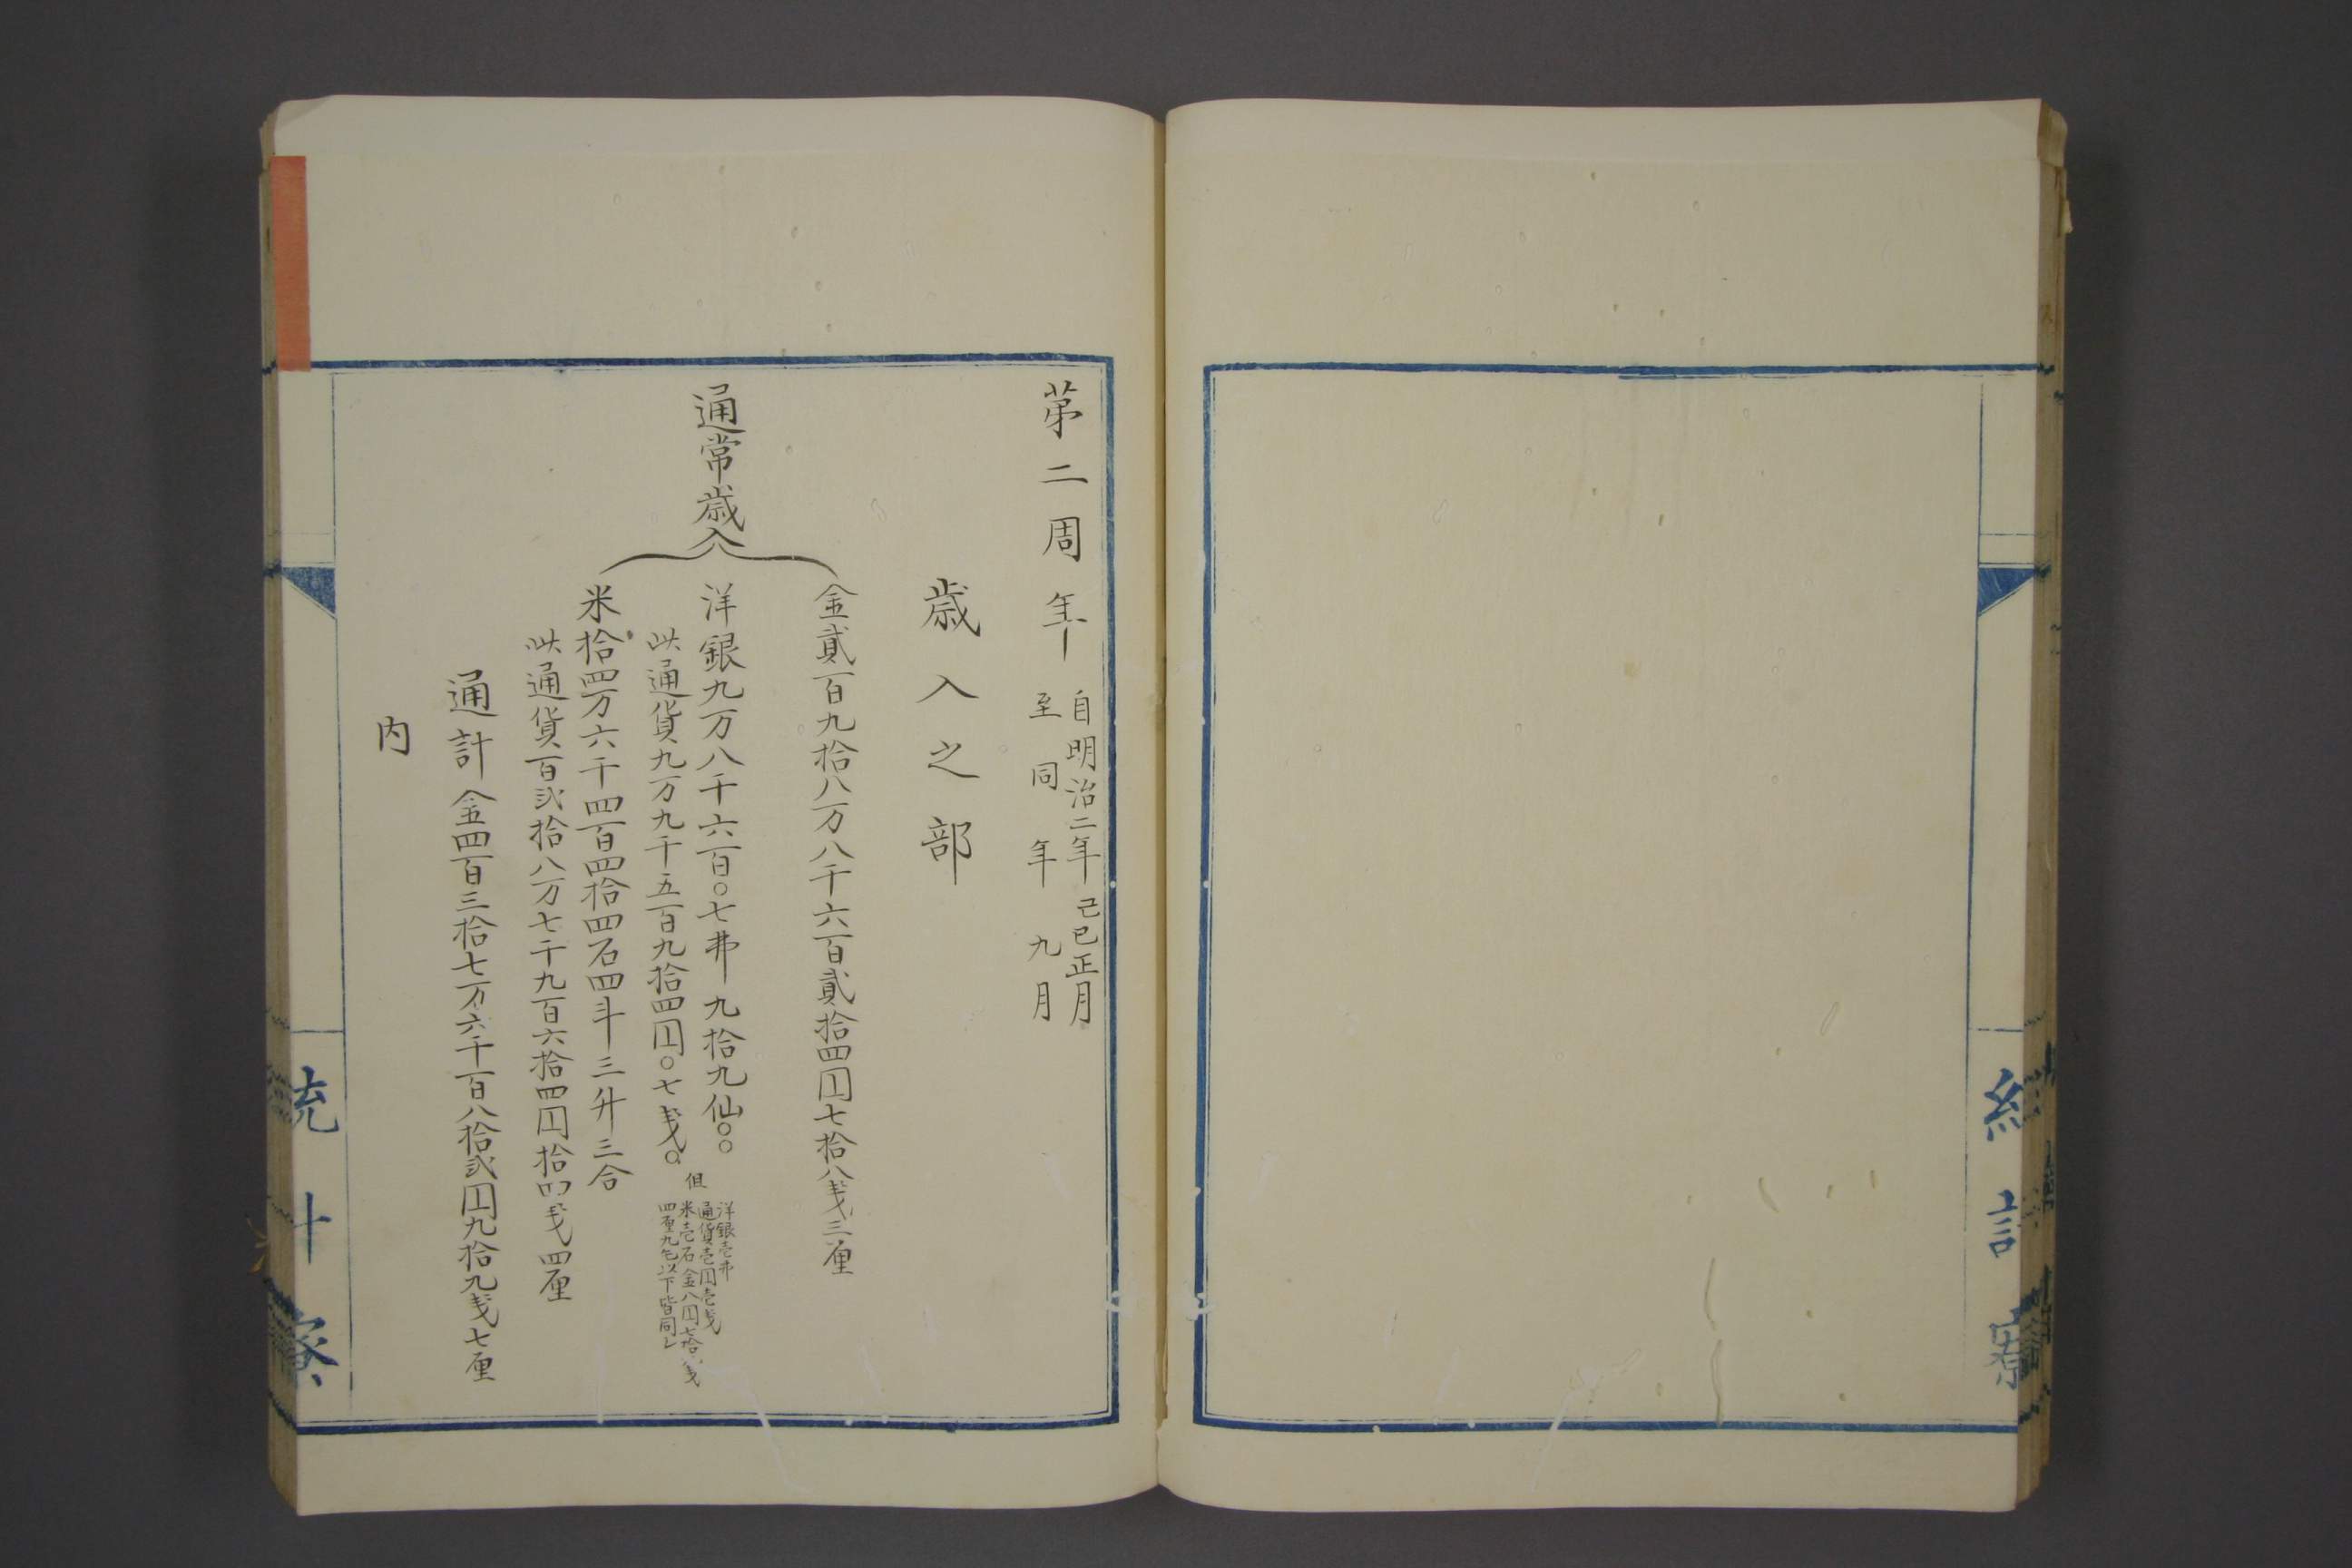 第二周年 自明治二年己巳正月
至同年九月
歳入之部
通常歳入
金貳百九拾八万八千六百貳拾四円七拾八戋三厘
洋銀九万八千六百〇七弗九拾九仙〇〇
此通貨九万九千五百九拾四円〇七戋〇
但
洋銀壱弗
通貨壱円壱戋
米壱石金八円七拾九戋
四厘九毛以下皆同シ
米拾四万六千四百四拾四石四斗三升三合
此通貨百弐拾八万七千九百六拾四円拾四戋四厘
通計金四百三拾七万六千百八拾弐円九拾九戋七厘
内
統計寮